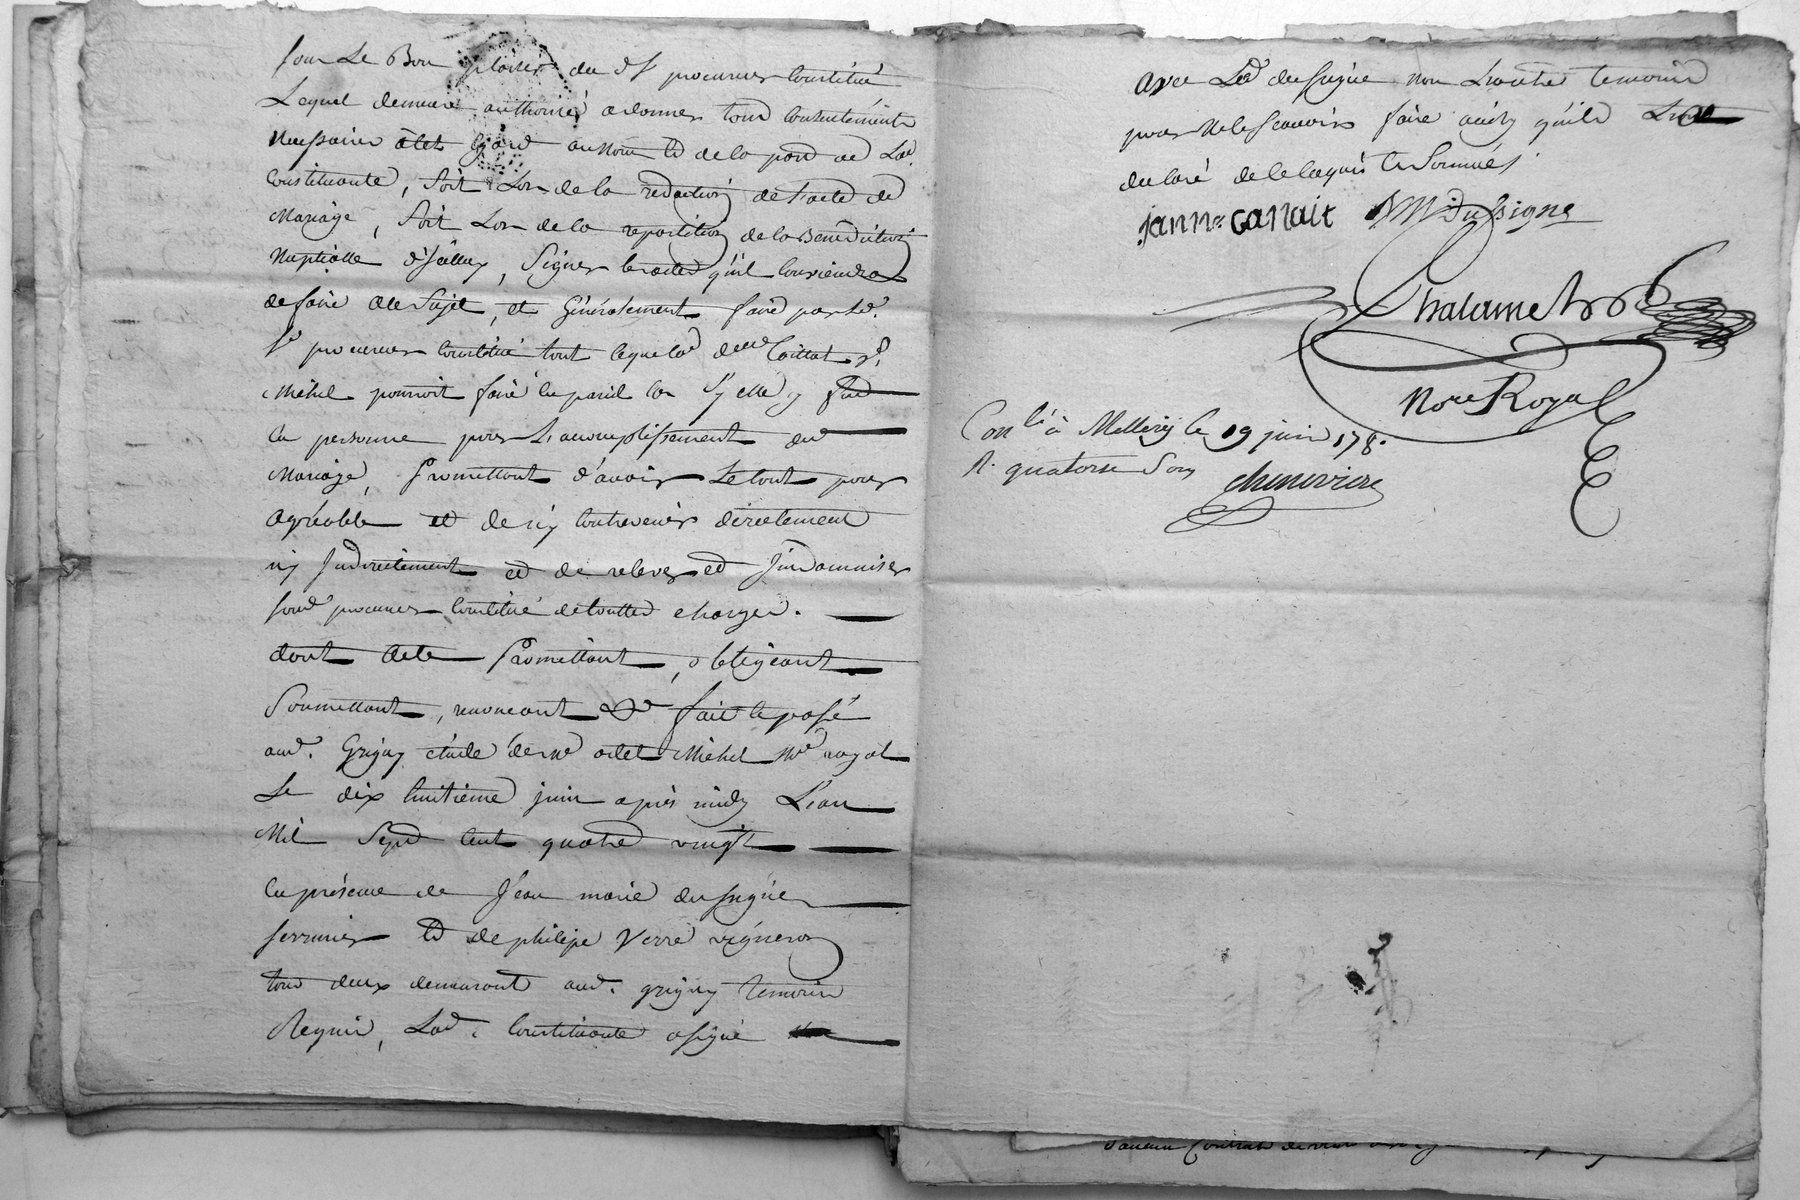 sous Le Bon plaisir du dt procureur Constitué
Lequel demeure authorisé adonner tous Consentements
Necessaire a cet Egard au Nom Et de la part de Lad.
Constituante, Soit Lors de la redaction de l'acte de
Mariage, Soit Lors de la repartition de la Benediction
Nuptialle d'Iceluy, Signer les actes qu'il Conviendra
de faire a Ce Sujet, et Généralement faire par le d.
Sr procureur Constitué tout ce que lad. delle
Michel pourroit faire en pareil Cas Sy elle y
en personne pour L'accomplissement du
Mariage, Promettant d'avoir Le tout pour
agréable et de n'y Contrevenir directement
ny Indirectement et de relever et Indamniser
sond. procureur Constitué de touttes charges.
dont acte Promettant, obligeant
Soumettant, renonceant &c fait et passé
aud. Grigny etude de me odet Michel Nre royal
Le dix huitieme juin après midy L'an
Mil Sept Cent quatre vingt
en présence de Jean marie dussigne
serrurier Et de philipe Verre vigneron
tous deux demeurant aud. grigny temoins
Requis, Lad. Constituante a signé
avec Led. dussigne non L'autre temoin
pour ne le scavoir faire ainsy qu'il L'a
declaré de ce Enquis et Sommés
janne canait JM Dussigne
Chalamel
Nore Royal
Conlé à Millery le 19 juin 178.
R. quatorse Sous
cheneviere